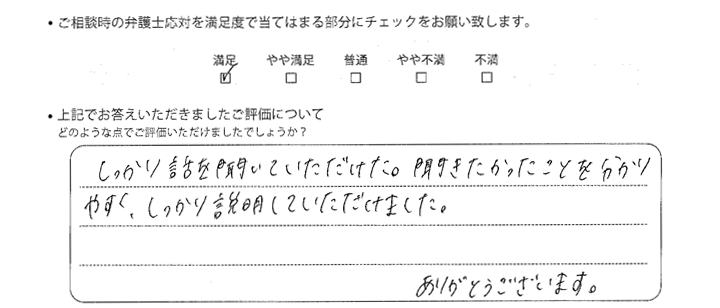 • ご相談時の弁護士応対を満足度で当てはまる部分にチェックをお願い致します。
満足 やや満足 普通 やや不満 不満
☑ □ □ □ □
• 上記でお答えいただきましたご評価について
どのような点でご評価いただけましたでしょうか？
しっかり話を聞いていただけた。聞きたかったことを分かり
やすく、しっかり説明していただけました。
ありがとうございます。